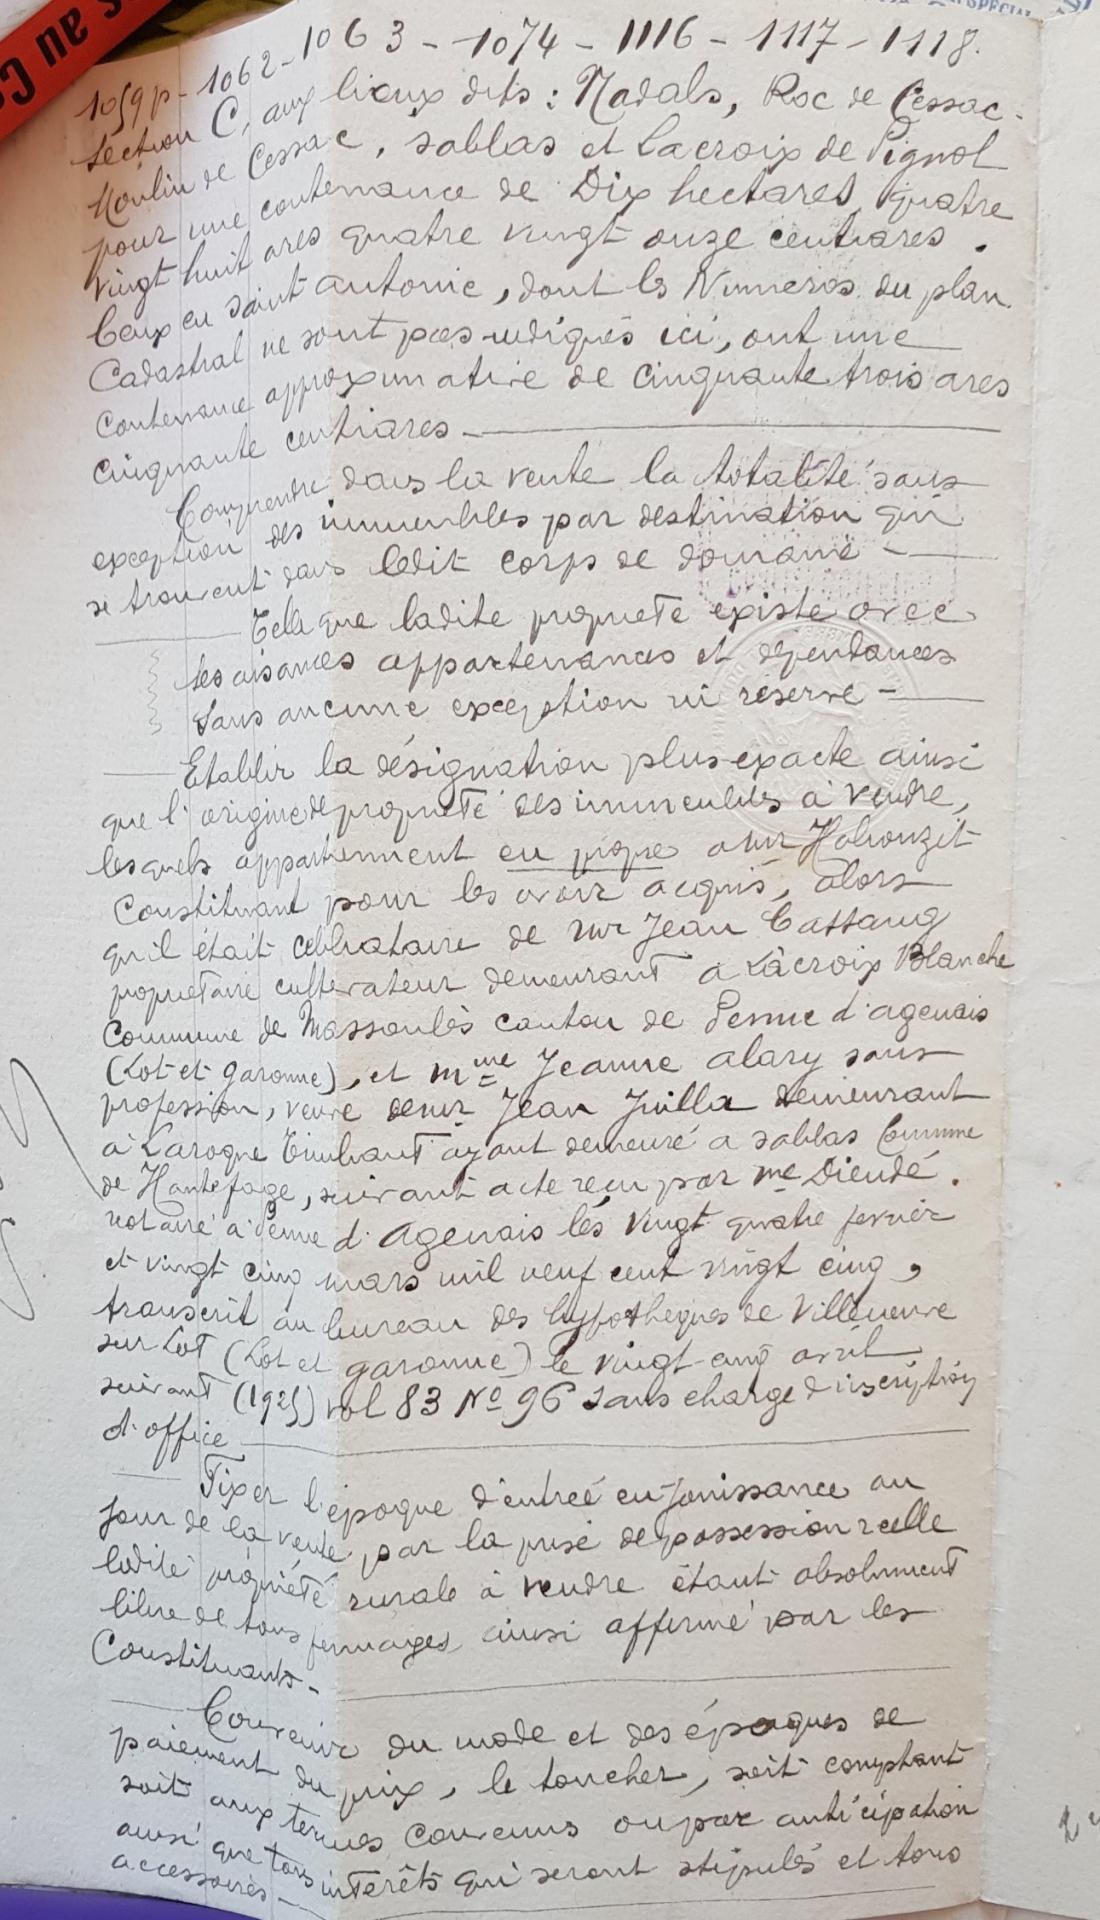 1059p - 1062 - 1063 - 1074 - 1116 - 1117 - 1118.
Section C, aux lieux dits : Nadals, Roc de Cessac -
Moulin de Cessac, Sablas et Lacroix de Pignol
pour une contenance de Dix hectares quatre
vingt huit ares quatre vingt onze centiares.
Ceux en Saint Antoine, dont les Numeros du plan
Cadastral ne sont pas rédigés ici, ont une
Contenance approximative de cinquante trois ares
Cinquante centiares -
Comprendre dans la vente la totalité sans
exception des immeubles par destination qui
se trouvent dans ledit corps de domaine -
Telle que ladite propriété existe avec
ses aisances appartenances et dépendances
sans aucune exception ni réserve -
Etablir la désignation plus exacte ainsi
que l'origine de propriété des immeubles à vendre,
lesquels appartiennent en propre a Mr
Constituant pour les avoir acquis, alors
qu'il était célibataire de Mr Jean
propriétaire cultivateur demeurant a Lacroix Blanche
Commune de Massoulès canton de Penne d'agenais
(Lot-et-garonne), et Mme Jeanne Alary sans
profession, veuve de Mr Jean Juilla demeurant
à Laroque Timbaut ayant demeuré a Sablas Commune
de Hautefage, suivant acte reçu par Me Dieudé.
notaire à Penne d'Agenais les vingt quatre fevrier
et vingt cinq mars mil neuf cent vingt cinq,
transcrit au bureau des hypothèques de Villeneuve
sur Lot (Lot et garonne) le vingt cinq avril
suivant (1925) vol 83 No 96 sans charge d'inscription
d'office
Fixer l'époque d'entrée en jouissance au
jour de la vente par la prise de possession réelle
ladite propriété rurale à vendre étant absolument
libre de tous fermages ainsi affirmé par les
Constituants -
Convenir du mode et des époques de
paiement du prix, le toucher, soit comptant
soit aux termes convenus ou par anticipation
ainsi que tous intérêts qui seront stipulés et tous
accessoires -